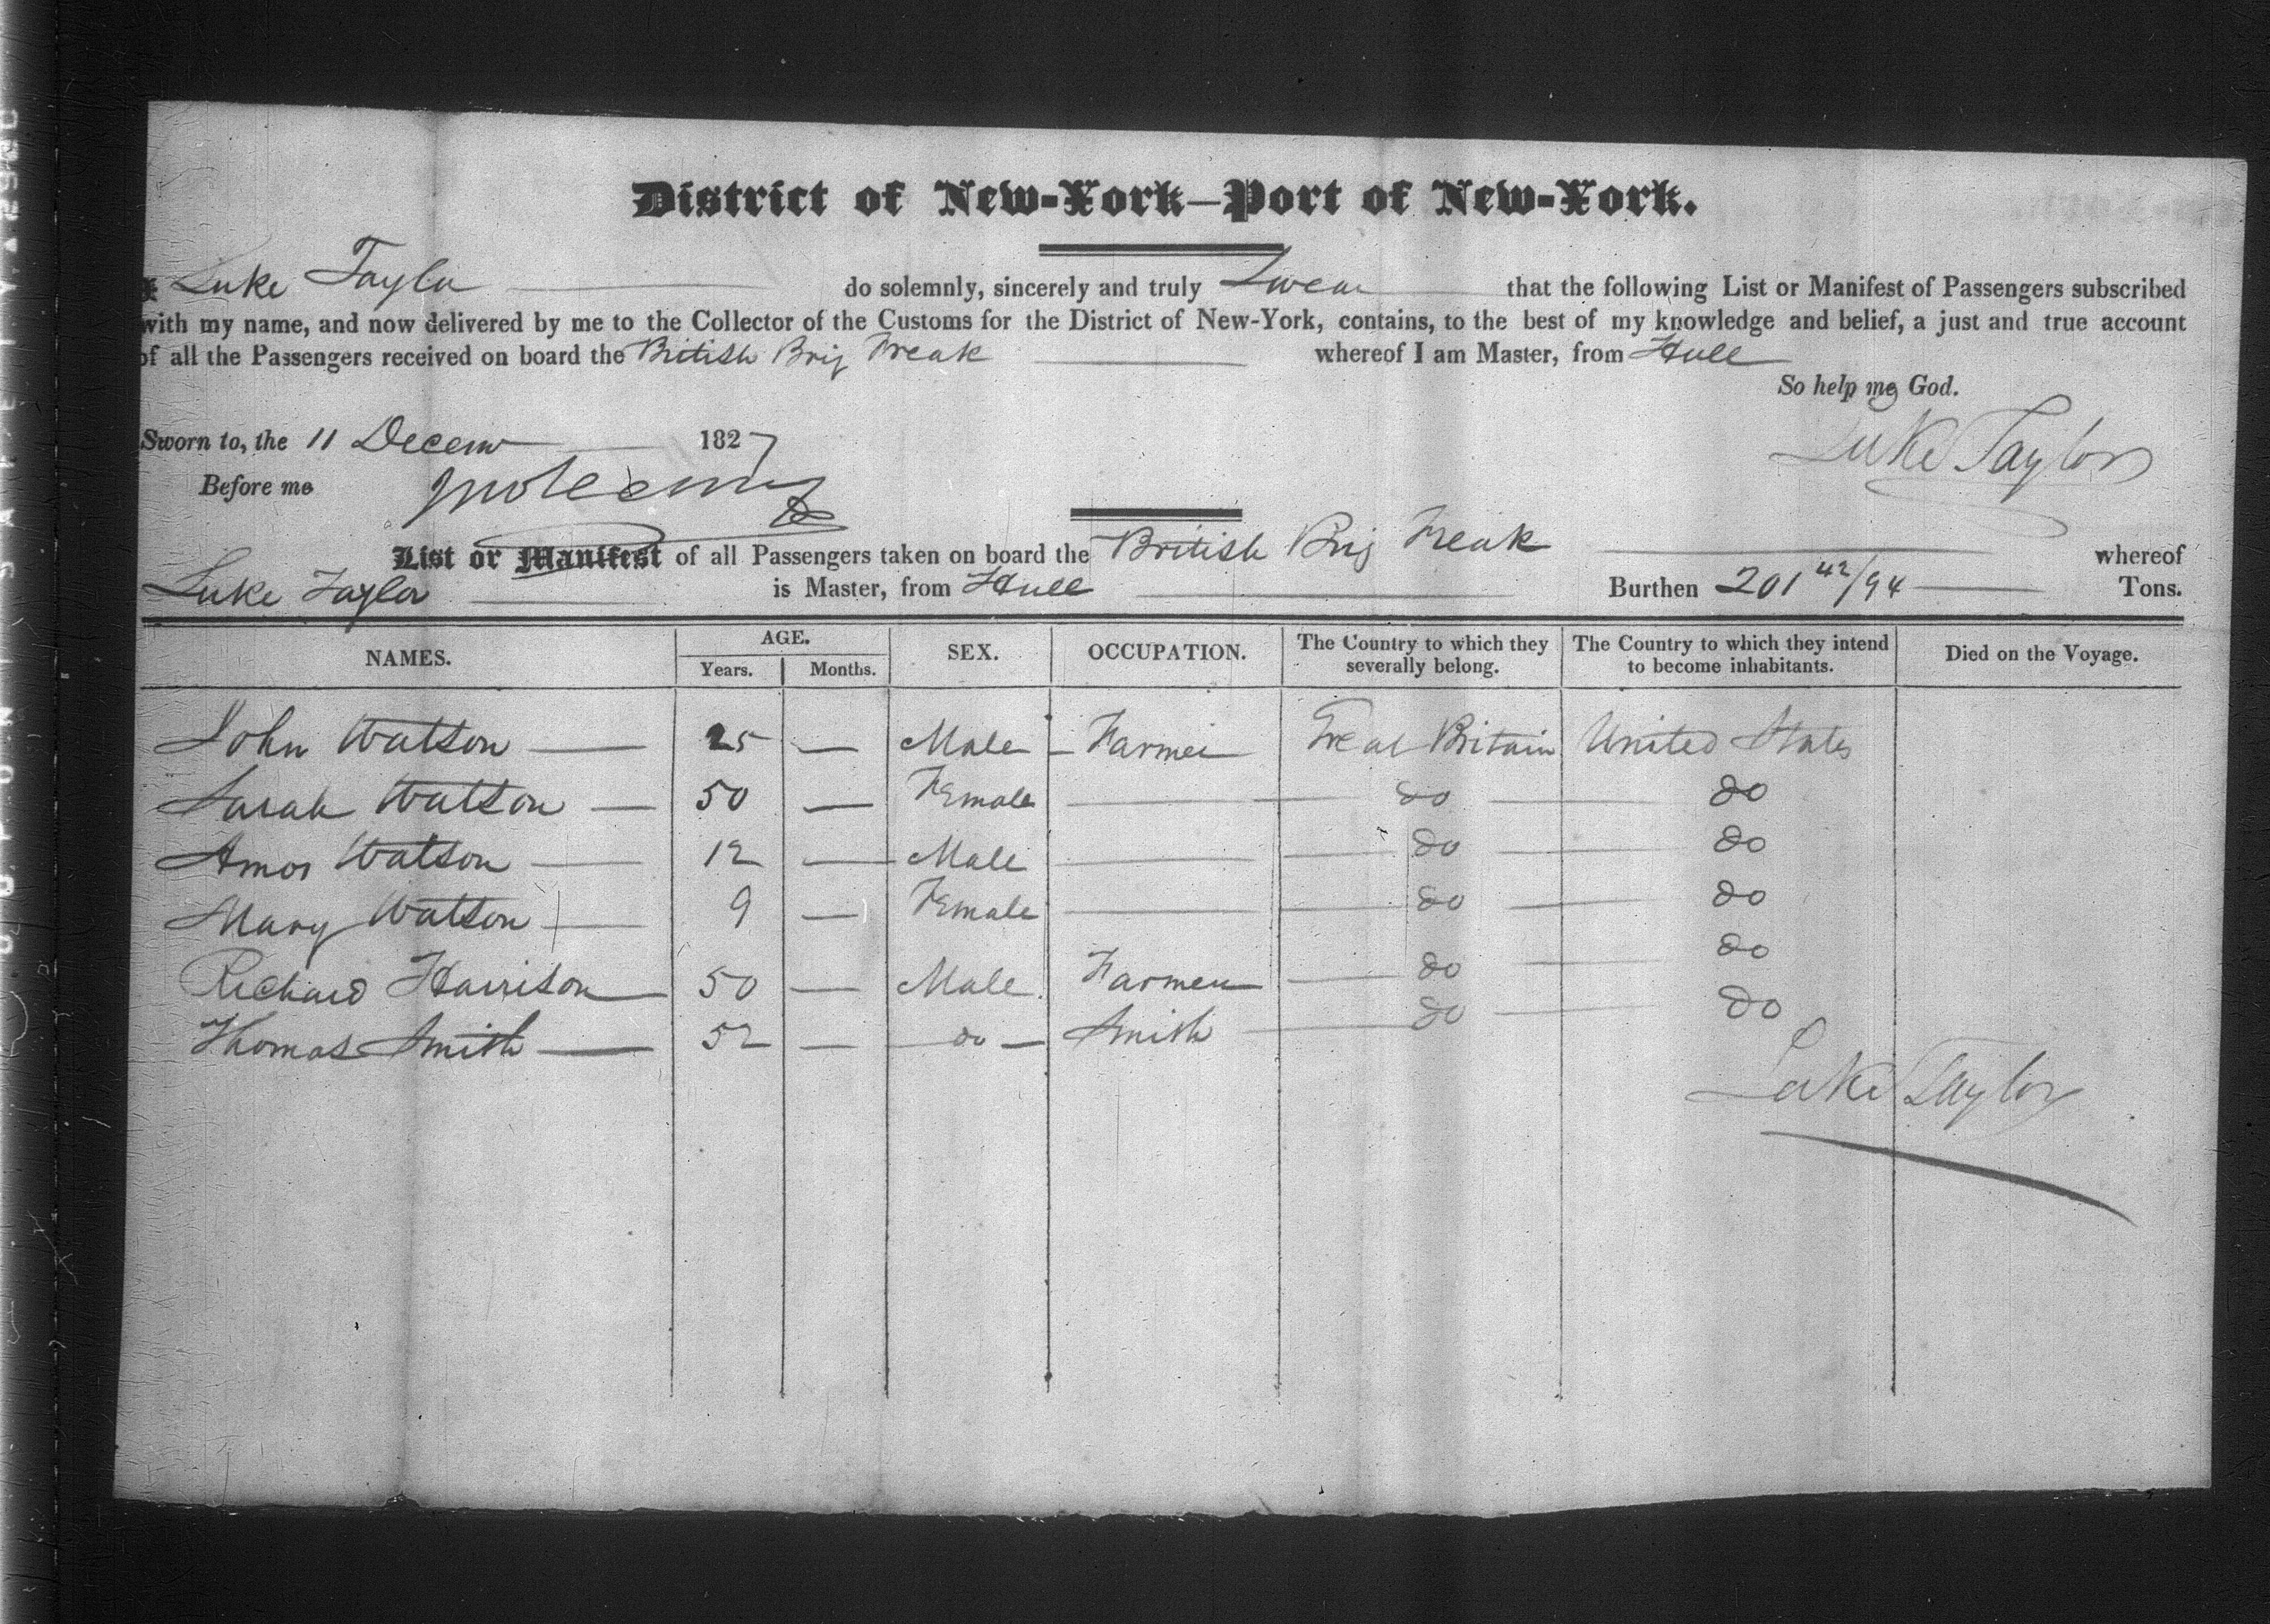 District of New-York—Port of New-York.
I Luke Taylor do solemnly, sincerely and truly Swear that the following List or Manifest of Passengers subscribed
with my name, and now delivered by me to the Collector of the Customs for the District of New-York, contains, to the best of my knowledge and belief, a just and true account
of all the Passengers received on board the British Brig Freak whereof I am Master, from Hull
So help me God.
Sworn to, the 11 Decem 1827 Luke Taylor
Before me
List or Manifest of all Passengers taken on board the British Brig Freak whereof
Luke Taylor is Master, from Hull Burthen 201 42/94 Tons.
NAMES. AGE. Years. Months. SEX. OCCUPATION. The Country to which they severally belong. The Country to which they intend to become inhabitants. Died on the Voyage.
John Watson — 25 — Male — Farmer Great Britain United States
Sarah Watson — 50 — Female — do — do
Amos Watson — 12 — Male — do — do
Mary Watson — 9 — Female — do — do
Richard Harrison — 50 — Male Farmer — do — do
Thomas Smith — 52 — do — Smith — do — do
Luke Taylor